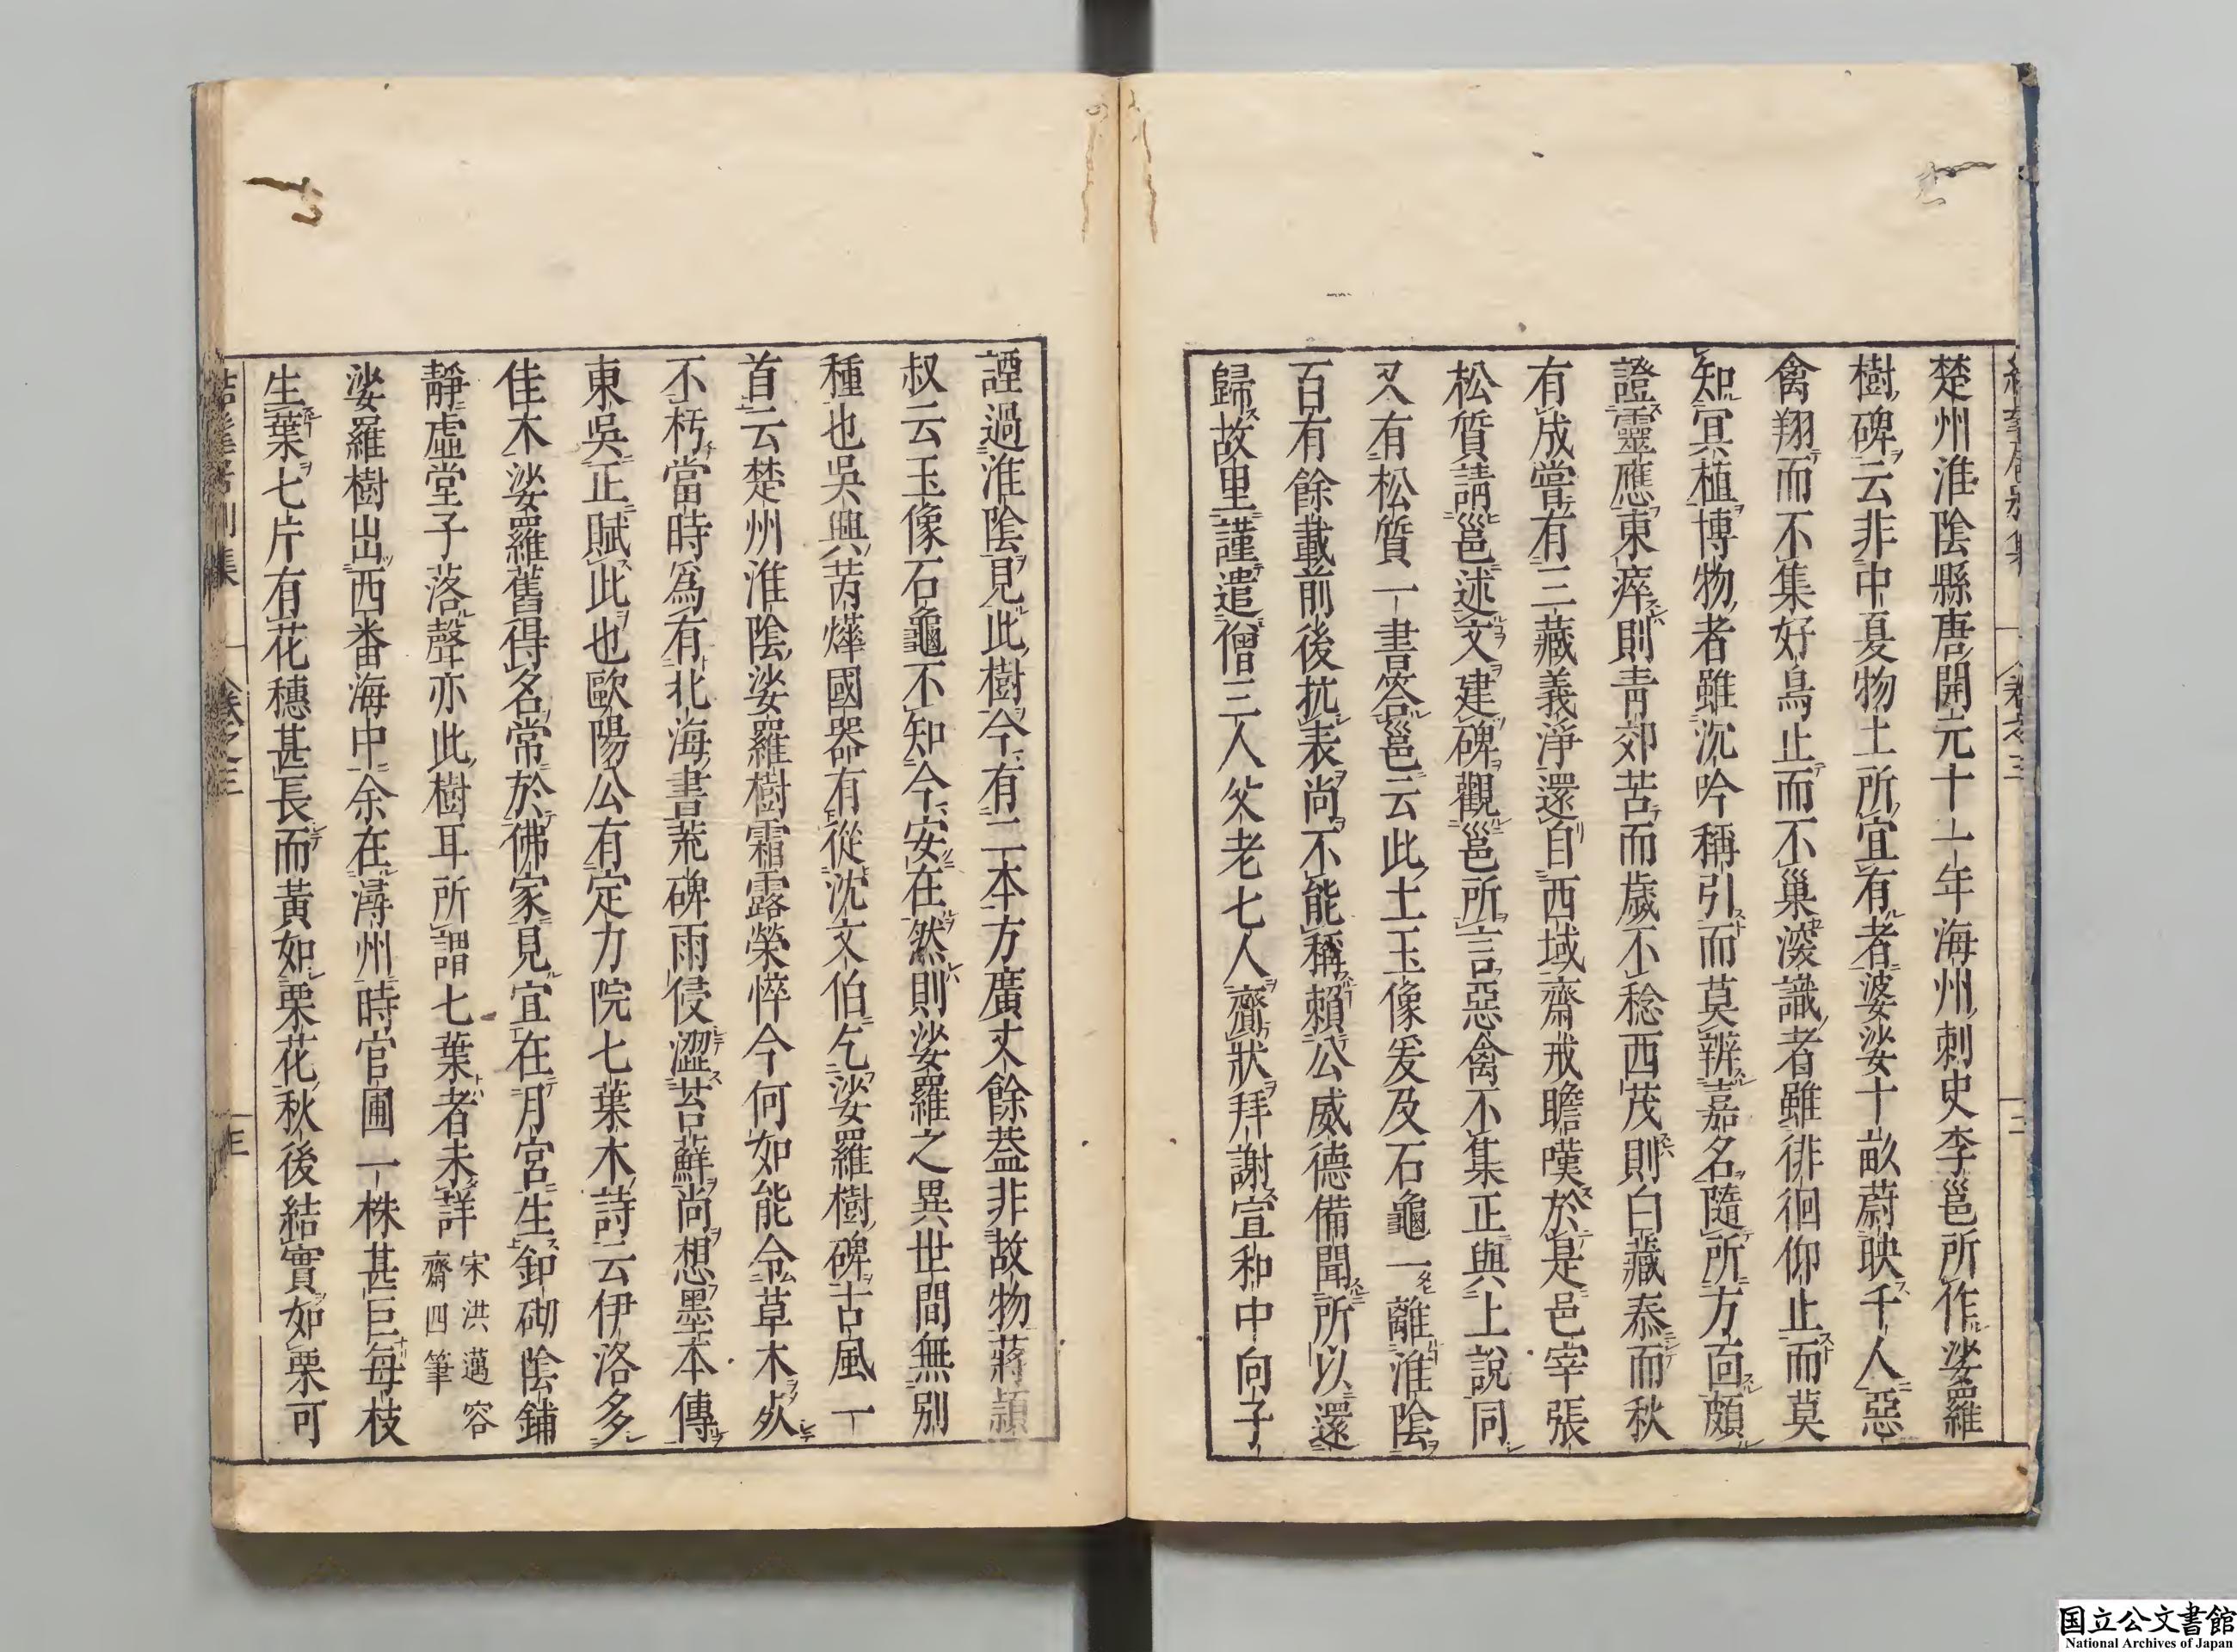 楚州淮陰縣唐開元十一年海州刺史李邕所作娑羅
樹碑云非中夏物土所宜有者婆娑十畝蔚映千人惡
禽翔而不集好鳥止而不巢深識者雖徘徊仰止而莫
知冥植博物者雖沈吟稱引而莫辨嘉名隨所方面頗
證靈應東瘁則青郊苦而歲不稔西茂則白藏泰而秋
有成嘗有三藏義淨還自西域齋戒瞻嘆於是邑宰張
松質請邕述文建碑觀邕所言惡禽不集正與上說同
又有松質一書答邕云此土玉像爰及石龜一離淮陰
百有餘載前後抗表尚不能稱賴公威德備聞所以還
歸故里謹遣僧三人父老七人齎狀拜謝宣和中向子
諲過淮陰見此樹今有二本方廣丈餘蓋非故物蔣頴
叔云玉像石龜不知今安在然則娑羅之異世間無別
種也吳興芮燁國器有從沈文伯乞娑羅樹碑古風一
首云楚州淮陰娑羅樹霜露榮悴今何如能令草木死
不朽當時爲有北海書荒碑雨侵澀苔蘚尚想墨本傳
東吳正賦此也歐陽公有定力院七葉木詩云伊洛多
佳木娑羅舊得名常於佛家見宜在月宮生釦砌陰鋪
靜虛堂子落聲亦此樹耳所謂七葉者未詳 宋洪邁容
齋四筆
娑羅樹出西番海中余在潯州時官圃一株甚巨每枝
生葉七片有花穗甚長而黃如栗花秋後結實如栗可
卷之三
三
国立公文書館
National Archives of Japan